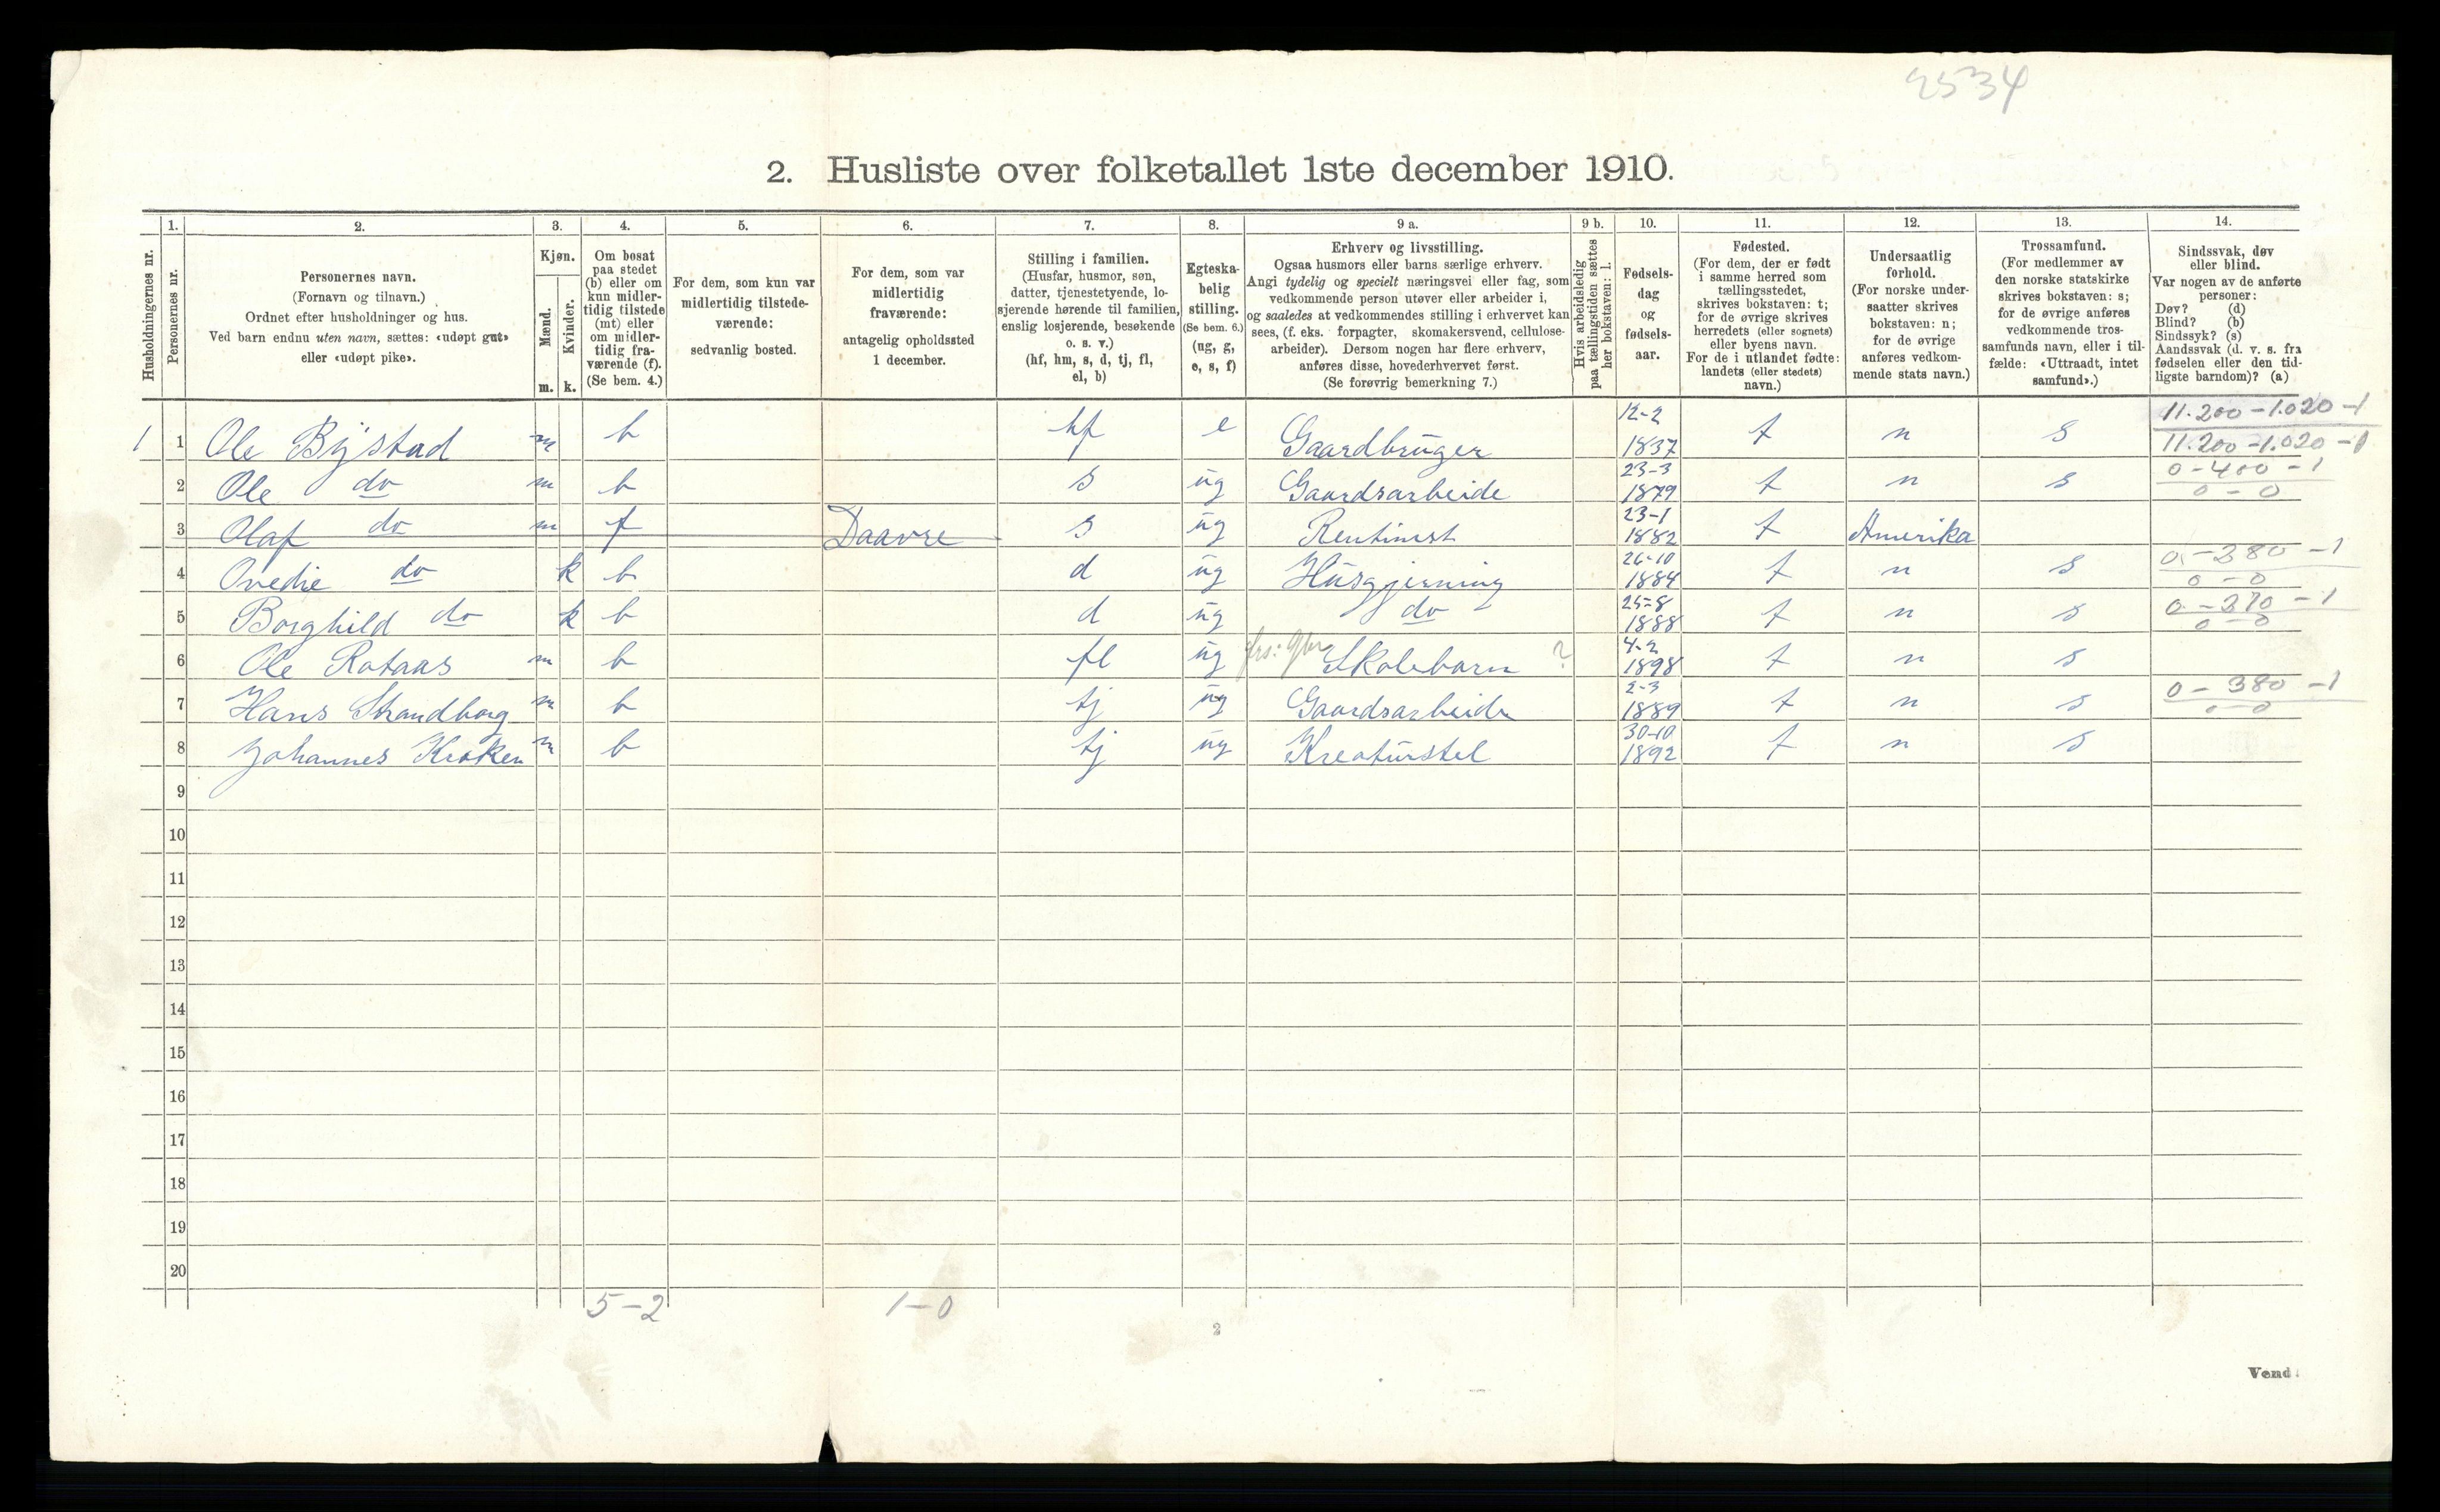 2534
2. Husliste over folketallet 1ste december 1910.
Husholdningernes nr.
1.
Personernes nr.
2.
Personernes navn.
(Fornavn og tilnavn.)
Ordnet efter husholdninger og hus.
Ved barn endnu uten navn, sættes: «udøpt gut»
eller «udøpt pike».
3.
Kjøn.
Mænd.
Kvinder.
m. k.
4.
Om bosat
paa stedet
(b) eller om
kun midler-
tidig tilstede
(mt) eller
om midler-
tidig fra-
værende (f).
(Se bem. 4.)
5.
For dem, som kun var
midlertidig tilstede-
værende:
sedvanlig bosted.
6.
For dem, som var
midlertidig
fraværende:
antagelig opholdssted
1 december.
7.
Stilling i familien.
(Husfar, husmor, søn,
datter, tjenestetyende, lo-
sjerende hørende til familien,
enslig losjerende, besøkende
o. s. v.)
(hf, hm, s, d, tj, fl,
el, b)
8.
Egteska-
belig
stilling.
(Se bem. 6.)
(ug, g,
e, s, f)
9 a.
Erhverv og livsstilling.
Ogsaa husmors eller barns særlige erhverv.
Angi tydelig og specielt næringsvei eller fag, som
vedkommende person utøver eller arbeider i,
og saaledes at vedkommendes stilling i erhvervet kan
sees, (f. eks. forpagter, skomakersvend, cellulose-
arbeider). Dersom nogen har flere erhverv,
anføres disse, hovederhvervet først.
(Se forøvrig bemerkning 7.)
9 b.
Hvis arbeidsledig
paa tællingstiden sættes
her bokstaven: l.
10.
Fødsels-
dag
og
fødsels-
aar.
11.
Fødested.
(For dem, der er født
i samme herred som
tællingsstedet,
skrives bokstaven: t;
for de øvrige skrives
herredets (eller sognets)
eller byens navn.
For de i utlandet fødte:
landets (eller stedets)
navn.)
12.
Undersaatlig
forhold.
(For norske under-
saatter skrives
bokstaven: n;
for de øvrige
anføres vedkom-
mende stats navn.)
13.
Trossamfund.
(For medlemmer av
den norske statskirke
skrives bokstaven: s;
for de øvrige anføres
vedkommende tros-
samfunds navn, eller i til-
fælde: «Uttraadt, intet
samfund».)
14.
Sindssvak, døv
eller blind.
Var nogen av de anførte
personer:
Døv? (d)
Blind? (b)
Sindssyk? (s)
Aandssvak (d. v. s. fra
fødselen eller den tid-
ligste barndom)? (a)
1 1 Ole Bystad m b hf e Gaardbruger 12-2 1837 t n s 11.200-1.020-1
11.200-1.020-1
2 Ole do m b s ug Gaardsarbeide 23-3 1879 t n s 0-400-1
0-0
3 Olaf do m f Daavre s ug Rentinest 23-1 1882 t Amerika
4 Ovedie do k b d ug Husgjerning 26-10 1884 t n s 0-380-1
0-0
5 Borghild do k b d ug do 25-8 1888 t n s 0-370-1
0-0
6 Ole Rotaas m b fl ug Skolebarn ? 4-2 1898 t n s
7 Hans Strandborg m b tj ug Gaardsarbeide 2-3 1889 t n s 0-380-1
0-0
8 Johannes Kroken m b tj ug Kreaturstel 30-10 1892 t n s
9
10
11
12
13
14
15
16
17
18
19
20
5-2 1-0
2
Vend